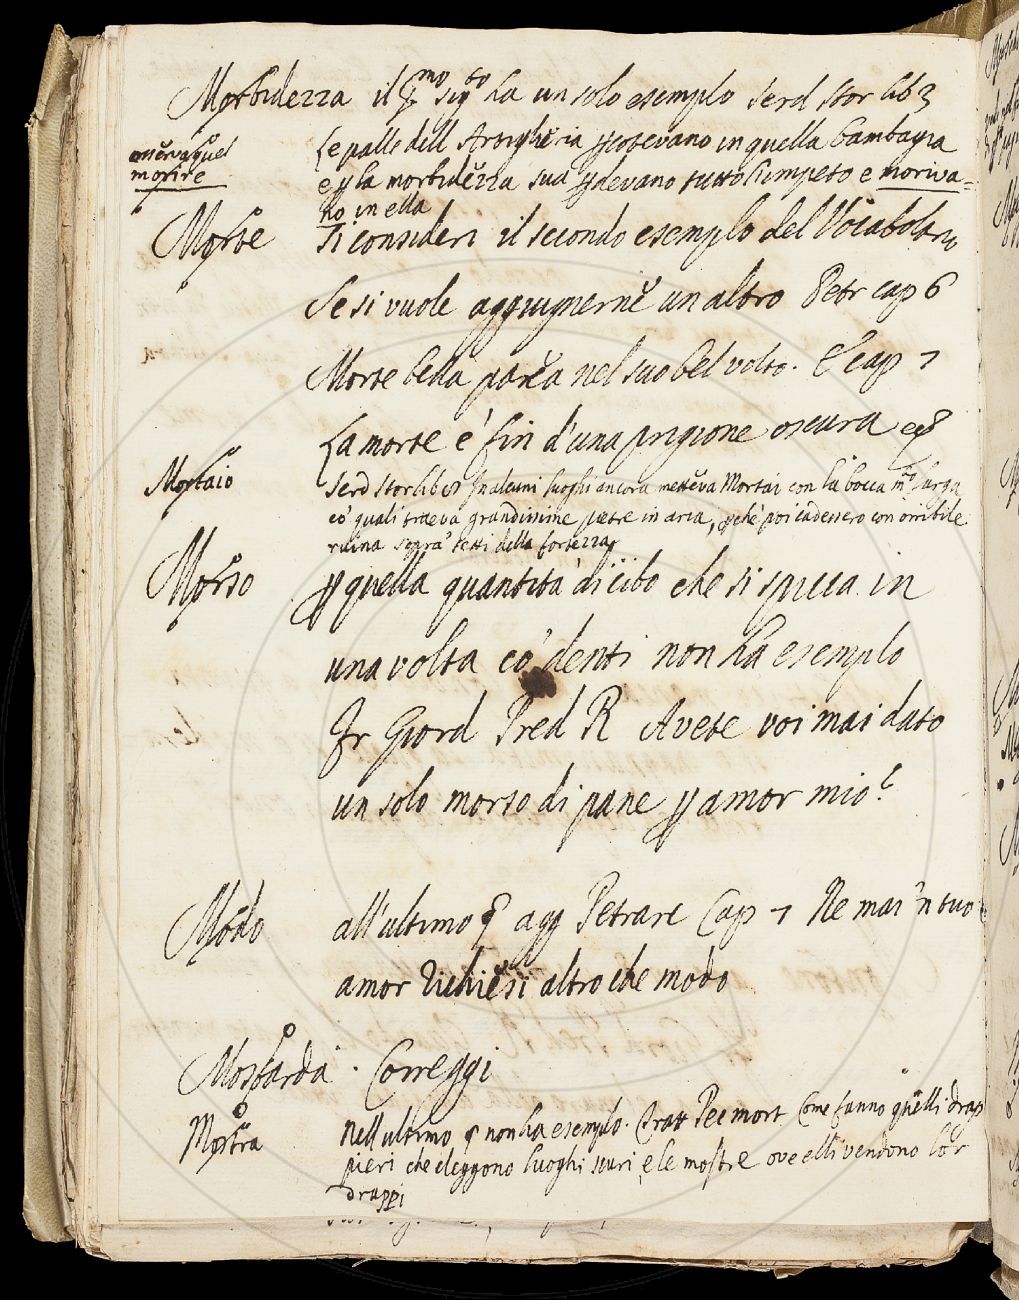 Morbidezza il p.mo sig.to ha un solo esempio Serd Stor lib 3
Le palle dell Artiglieria percotevano in quella bambagia
e p la morbidezza sua pdevano tutto l'impeto e moriva=
no in ella
morire
Morte Si consideri il secondo esempio del Vocabolario
Se si vuole aggiugnerne un altro Petr cap 6
Morte bella parea nel suo bel volto. E cap 7
La morte e' fin d'una prigione oscura
Mortaio Serd Stor lib In alcuni luoghi ancora metteva Mortai con la bocca larga
co' quali traeva grandissime pietre in aria, pche' poi cadessero con orribile
ruina sopra' tetti della fortezza
Morso p quella quantita' di cibo che si spicca in
una volta co' denti non ha esempio
Fr Giord Pred R Avete voi mai dato
un solo morso di pane p amor mio?
Modo all'ultimo § agg Petrarc Cap 7 Ne mai 'n tuo
amor richiesi altro che modo
Mostarda . Correggi
Mostra Nell'ultimo § non ha esempio. Tratt Pec mort Come fanno quelli drap
pieri che eleggono luoghi scuri, e le mostre ove elli vendono lor
drappi